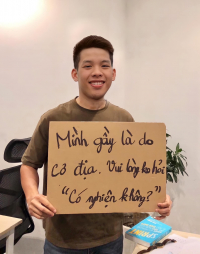 Mình gầy là do
cơ địa. Vui lòng ko hỏi
"Có nghiện không?"